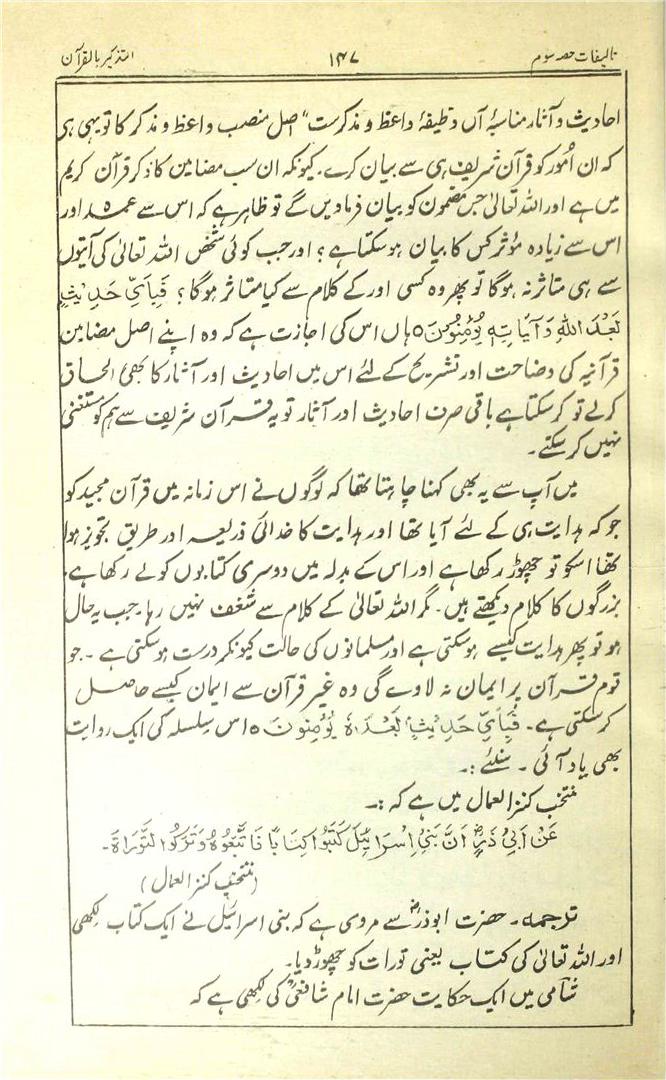 تالیفات حصہ سوم ۱۴۷ التذکیر بالقرآن
احادیث و آثار مناسبۂ آں وظیفۂ واعظ و مذکرست“ اصل منصب واعظ و مذکر کا تو یہی ہی
کہ ان اُمور کو قرآن شریف ہی سے بیان کرے۔ کیونکہ ان سب مضامین کا ذکر قرآن کریم
میں ہے اور اللہ تعالیٰ جس مضمون کو بیان فرمادیں گے تو ظاہر ہے کہ اس سے عمدہ اور
اس سے زیادہ مؤثر کس کا بیان ہو سکتا ہے؟ اور جب کوئی شخص اللہ تعالیٰ کی آیتوں
سے ہی متاثر نہ ہوگا تو پھر وہ کسی اور کے کلام سے کیا متاثر ہوگا؟ فَبِاَیِّ حَدِیْثٍۭ
بَعْدَ اللّٰهِ وَ آیَاتِهٖ یُؤْمِنُوْنَ ۵ ہاں اس کی اجازت ہے کہ وہ اپنے اصل مضامین
قرآنیہ کی وضاحت اور تشریح کے لئے اس میں احادیث اور آثار کا بھی الحاق
کرلے تو کرسکتا ہے باقی صرف احادیث اور آثار تو یہ قرآن شریف سے ہم کو مستغنی
نہیں کرسکتے۔
میں آپ سے یہ بھی کہنا چاہتا تھا کہ لوگوں نے اس زمانہ میں قرآن مجید کو
جو کہ ہدایت ہی کے لئے آیا تھا اور ہدایت کا خدائی ذریعہ اور طریق تجویز ہوا
تھا اسکو تو چھوڑ رکھا ہے اور اس کے بدلہ میں دوسری کتابوں کو لے رکھا ہے،
بزرگوں کا کلام دیکھتے ہیں۔ مگر اللہ تعالیٰ کے کلام سے شغف نہیں رہا۔ جب یہ حال
ہو تو پھر ہدایت کیسے ہوسکتی ہے اور مسلمانوں کی حالت کیونکر درست ہوسکتی ہے۔ جو
قوم قرآن پر ایمان نہ لاوے گی وہ غیر قرآن سے ایمان کیسے حاصل
کرسکتی ہے۔ فَبِاَیِّ حَدِیْثٍۭ بَعْدَهٗ یُؤْمِنُوْنَ ۵ اس سلسلہ کی ایک روایت
بھی یاد آئی۔ سنئے :۔
منتخب کنز العمال میں ہے کہ :۔
عَنْ اَبِیْ ذَرٍّؓ اَنَّ بَنِیْ اِسْرَائِیْلَ كَتَبُوْا كِتَابًا فَاتَّبَعُوْهُ وَتَرَكُوا التَّوْرَاةَ۔
(منتخب کنز العمال)
ترجمہ۔ حضرت ابوذرؓ سے مروی ہے کہ بنی اسرائیل نے ایک کتاب لکھی
اور اللہ تعالیٰ کی کتاب یعنی تورات کو چھوڑ دیا۔
شامی میں ایک حکایت حضرت امام شافعیؒ کی لکھی ہے کہ